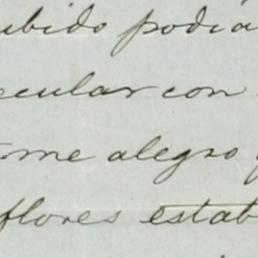 ubido podia
ecular con
me alegro
flores estab